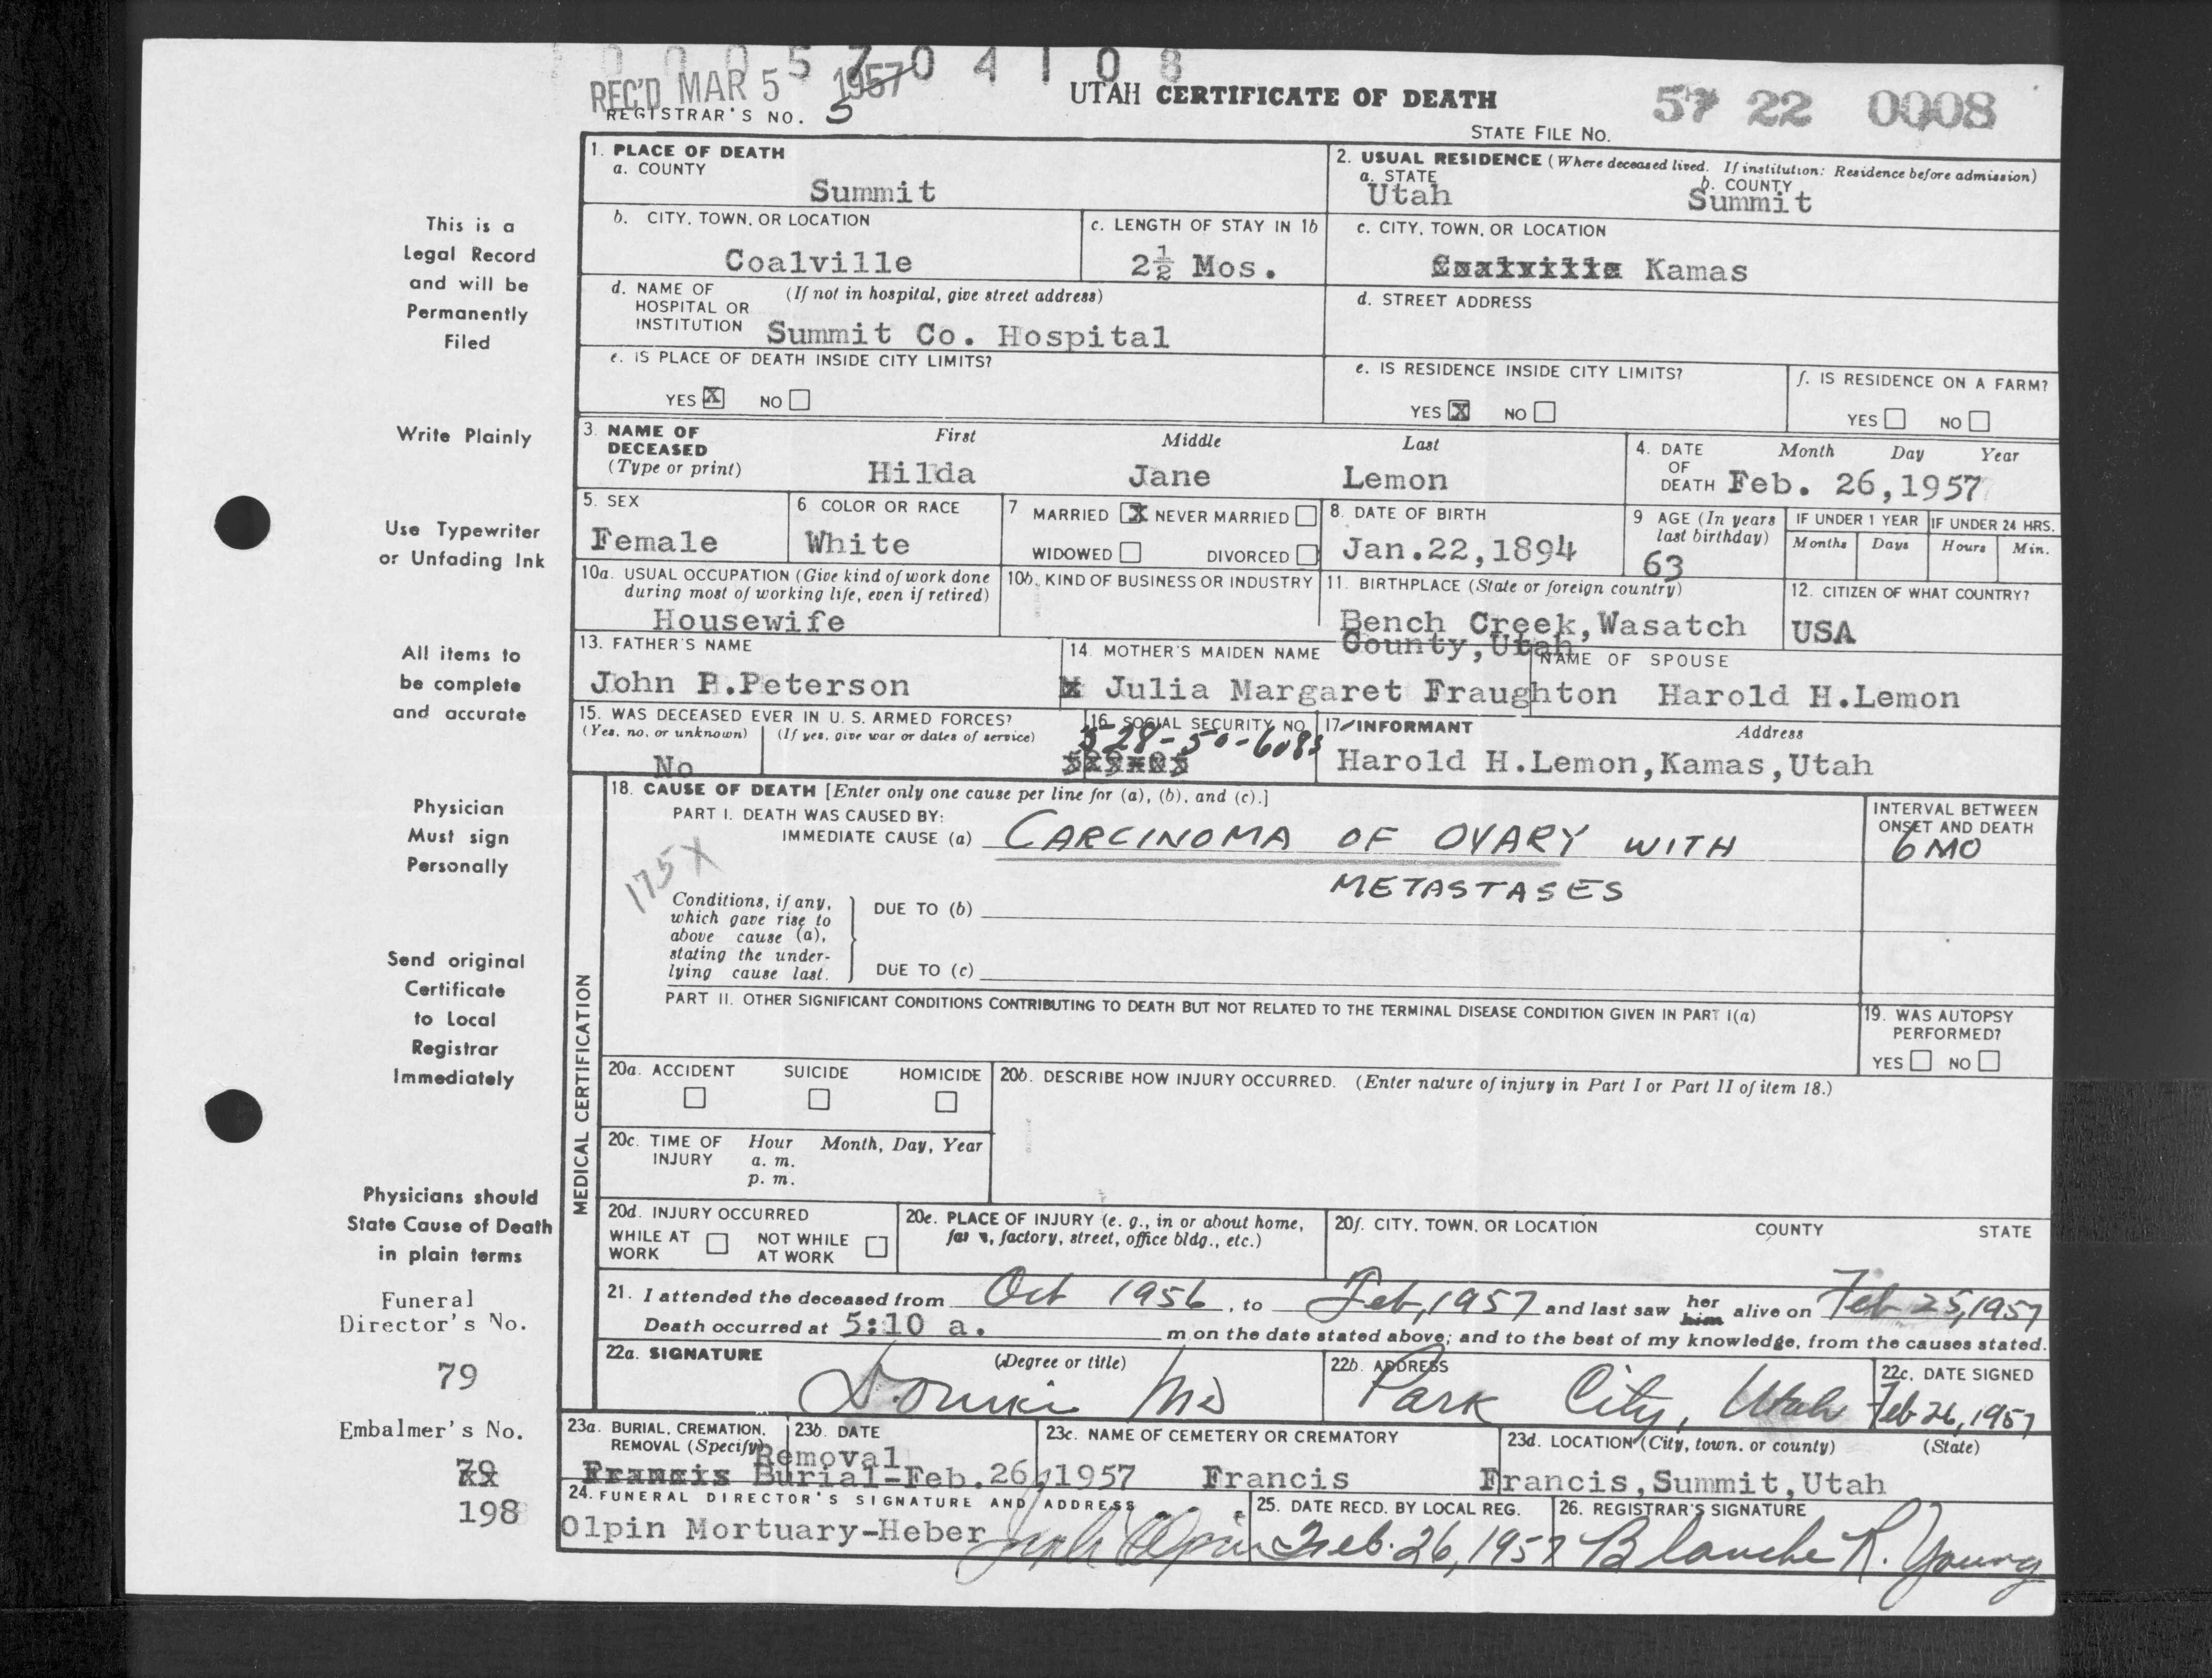 0 0 0 5 7 0 4 1 0 8
REC'D MAR 5 1957
REGISTRAR'S NO. 5
UTAH CERTIFICATE OF DEATH
57 22 0008
STATE FILE NO.
1. PLACE OF DEATH
a. COUNTY
Summit
2. USUAL RESIDENCE (Where deceased lived. If institution: Residence before admission)
a. STATE
Utah
b. COUNTY
Summit
b. CITY, TOWN, OR LOCATION
Coalville
c. LENGTH OF STAY IN 1b
2½ Mos.
c. CITY, TOWN, OR LOCATION
Kamas
d. NAME OF HOSPITAL OR INSTITUTION
(If not in hospital, give street address)
Summit Co. Hospital
d. STREET ADDRESS
e. IS PLACE OF DEATH INSIDE CITY LIMITS?
YES X NO
e. IS RESIDENCE INSIDE CITY LIMITS?
YES X NO
f. IS RESIDENCE ON A FARM?
YES NO
3. NAME OF DECEASED
(Type or print)
First Middle Last
Hilda Jane Lemon
4. DATE OF DEATH
Month Day Year
Feb. 26,1957
5. SEX
Female
6 COLOR OR RACE
White
7 MARRIED X NEVER MARRIED
WIDOWED DIVORCED
8. DATE OF BIRTH
Jan.22,1894
9 AGE (In years last birthday)
63
IF UNDER 1 YEAR
Months Days
IF UNDER 24 HRS.
Hours Min.
10a. USUAL OCCUPATION (Give kind of work done during most of working life, even if retired)
Housewife
10b. KIND OF BUSINESS OR INDUSTRY
11. BIRTHPLACE (State or foreign country)
Bench Creek,Wasatch
County,Utah
12. CITIZEN OF WHAT COUNTRY?
USA
13. FATHER'S NAME
John P.Peterson
14. MOTHER'S MAIDEN NAME
Julia Margaret Fraughton
NAME OF SPOUSE
Harold H.Lemon
15. WAS DECEASED EVER IN U. S. ARMED FORCES?
(Yes, no, or unknown) (If yes, give war or dates of service)
No
16. SOCIAL SECURITY NO.
528-50-6083
17 INFORMANT Address
Harold H.Lemon,Kamas,Utah
MEDICAL CERTIFICATION
18. CAUSE OF DEATH [Enter only one cause per line for (a), (b), and (c).]
PART I. DEATH WAS CAUSED BY:
IMMEDIATE CAUSE (a) CARCINOMA OF OVARY WITH
METASTASES
175X
INTERVAL BETWEEN ONSET AND DEATH
6 MO
Conditions, if any, which gave rise to above cause (a), stating the underlying cause last.
DUE TO (b)
DUE TO (c)
PART II. OTHER SIGNIFICANT CONDITIONS CONTRIBUTING TO DEATH BUT NOT RELATED TO THE TERMINAL DISEASE CONDITION GIVEN IN PART I(a)
19. WAS AUTOPSY PERFORMED?
YES NO
20a. ACCIDENT SUICIDE HOMICIDE
20b. DESCRIBE HOW INJURY OCCURRED. (Enter nature of injury in Part I or Part II of item 18.)
20c. TIME OF INJURY
Hour Month, Day, Year
a. m.
p. m.
20d. INJURY OCCURRED
WHILE AT WORK NOT WHILE AT WORK
20e. PLACE OF INJURY (e. g., in or about home, factory, street, office bldg., etc.)
20f. CITY, TOWN, OR LOCATION COUNTY STATE
21. I attended the deceased from Oct 1956, to Feb,1957 and last saw her him alive on Feb 25,1957
Death occurred at 5:10 a. m on the date stated above; and to the best of my knowledge, from the causes stated.
22a. SIGNATURE (Degree or title)
MD
22b. ADDRESS
Park City, Utah
22c. DATE SIGNED
Feb 26, 1957
23a. BURIAL, CREMATION, REMOVAL (Specify)
Removal
Francis Burial-
23b. DATE
Feb.26,1957
23c. NAME OF CEMETERY OR CREMATORY
Francis
23d. LOCATION (City, town, or county) (State)
Francis,Summit,Utah
24. FUNERAL DIRECTOR'S SIGNATURE AND ADDRESS
Olpin Mortuary-Heber
25. DATE RECD. BY LOCAL REG.
Feb. 26, 1957
26. REGISTRAR'S SIGNATURE
Blanche R. Young
This is a
Legal Record
and will be
Permanently
Filed
Write Plainly
Use Typewriter
or Unfading Ink
All items to
be complete
and accurate
Physician
Must sign
Personally
Send original
Certificate
to Local
Registrar
Immediately
Physicians should
State Cause of Death
in plain terms
Funeral
Director's No.
79
Embalmer's No.
79
198